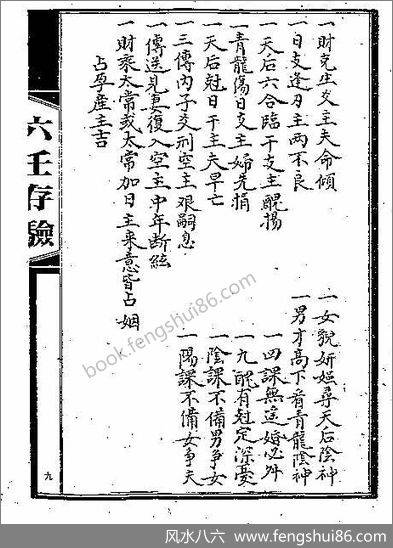 一財克生爻主夫命傾
一女貌妍媸尋天后陰神
一日支逢刃主兩不良
一男才高下看青龍陰神
一天后六合臨干支主醜揚
一四課無遥婚必外
一青龍傷日支主婦先捐
一九醜有尅定深憂
一天后尅日干主夫早亡
一陰課不備男爭女
一三傳內子爻刑空主艱嗣息
一陽課不備女爭夫
一傳送見妻復入空主中年斷絃
一財乘太常或太常加日主來意皆占姻
占孕產主吉
六壬存驗
九
book.fengshui86.com
风水八六 - www.fengshui86.com